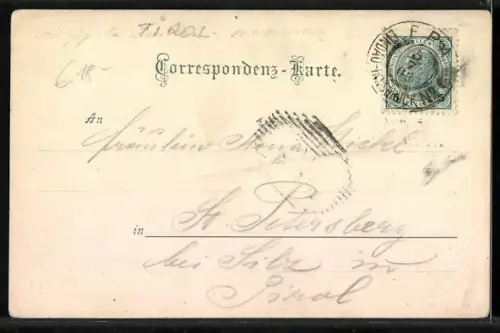 TIROL
6.18
Correspondenz-Karte.
An
Fräulein Anna
in St Petersberg
bei Silz in
Tirol